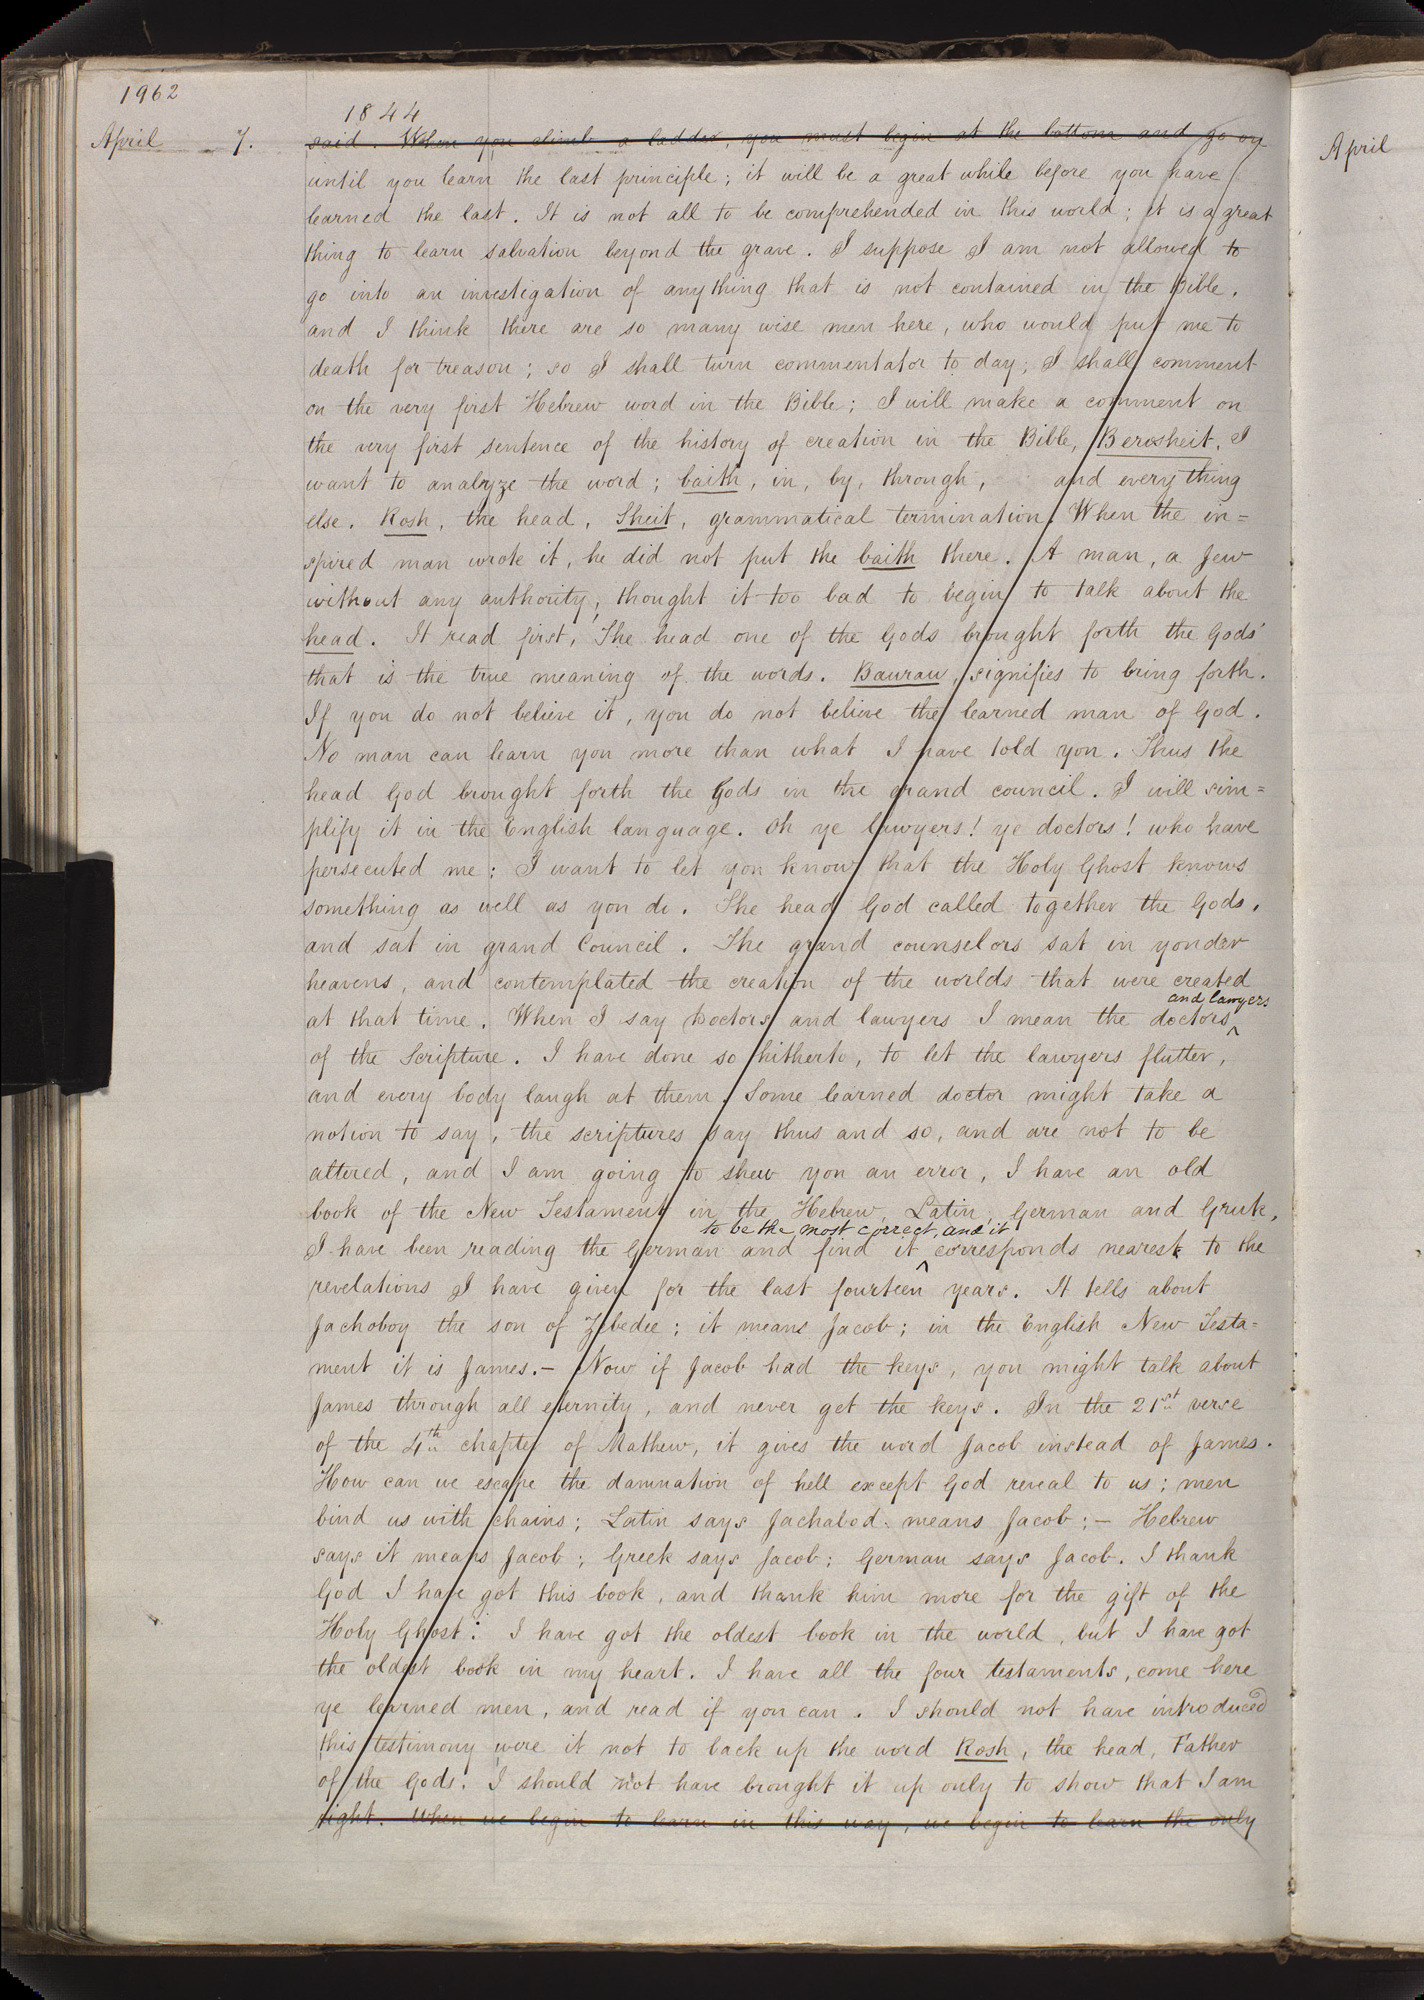 1962
1844
April 7. said. When you climb a ladder, you must begin at the bottom and go on
until you learn the last principle; it will be a great while before you have
learned the last. It is not all to be comprehended in this world; it is a great
thing to learn salvation beyond the grave. I suppose I am not allowed to
go into an investigation of anything that is not contained in the Bible.
and I think there are so many wise men here, who would put me to
death for treason; so I shall turn commentator to day; I shall comment
on the very first Hebrew word in the Bible; I will make a comment on
the very first sentence of the history of creation in the Bible, Berosheit. I
want to analyze the word; baith, in, by, through, and every thing
else. Rosh, the head, Sheit, grammatical termination. When the in=
spired man wrote it, he did not put the baith there. A man, a Jew
without any authority, thought it too bad to begin to talk about the
head. It read first, 'The head one of the Gods brought forth the Gods'
that is the true meaning of the words. Baurau, signifies to bring forth.
If you do not believe it, you do not believe the learned man of God.
No man can learn you more than what I have told you. Thus the
head God brought forth the Gods in the grand council. I will sim=
plify it in the English language. Oh ye lawyers! ye doctors! who have
persecuted me; I want to let you know that the Holy Ghost knows
something as well as you do. The head God called together the Gods,
and sat in grand Council. The grand counselors sat in yonder
heavens, and contemplated the creation of the worlds that were created
and lawyers
at that time. When I say Doctors and lawyers I mean the doctors^
of the Scripture. I have done so hitherto, to let the lawyers flutter,
and every body laugh at them. Some learned doctor might take a
notion to say, the scriptures say thus and so, and are not to be
altered, and I am going to shew you an error, I have an old
book of the New Testament in the Hebrew, Latin, German and Greek,
to be the most correct, and it
I have been reading the German and find it ^ corresponds nearest to the
revelations I have given for the last fourteen years. It tells about
Jachoboy the son of Zebedee; it means Jacob; in the English New Testa=
ment it is James.— Now if Jacob had the keys, you might talk about
James through all eternity, and never get the keys. In the 21st verse
of the 4th chapter of Mathew, it gives the word Jacob instead of James.
How can we escape the damnation of hell except God reveal to us; men
bind us with chains; Latin says Jachabod. means Jacob;— Hebrew
says it means Jacob; Greek says Jacob; German says Jacob. I thank
God I have got this book, and thank him more for the gift of the
Holy Ghost. I have got the oldest book in the world, but I have got
the oldest book in my heart. I have all the four testaments, come here
ye learned men, and read if you can. I should not have introduced
this testimony were it not to back up the word Rosh, the head, Father
of the Gods. I should not have brought it up only to show that I am
right. When we begin to learn in this way, we begin to learn the only
April